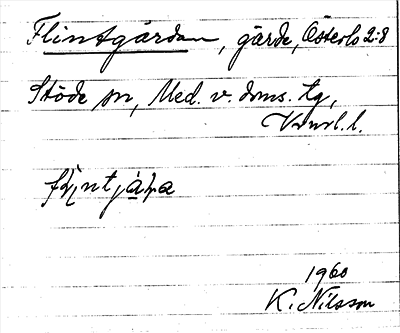 Flintgården, gärde, Österlo 2:8
Stöde sn, Med. v. doms. tg,
Vnrl. l.
1960
K. Nilsson